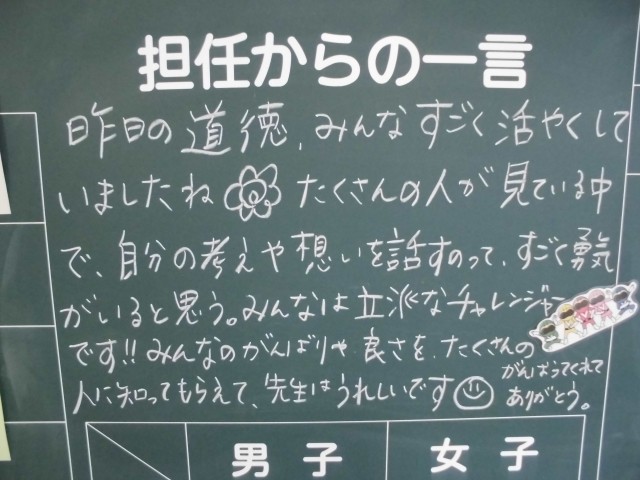 担任からの一言
昨日の道徳、みんなすごく活やくして
いましたね たくさんの人が見ている中
で、自分の考えや想いを話すのって、すごく勇気
がいると思う。みんなは立派なチャレンジャー
です!! みんなのがんばりや良さを、たくさんの
人に知ってもらえて、先生はうれしいです
がんばってくれて
ありがとう。
男子 女子